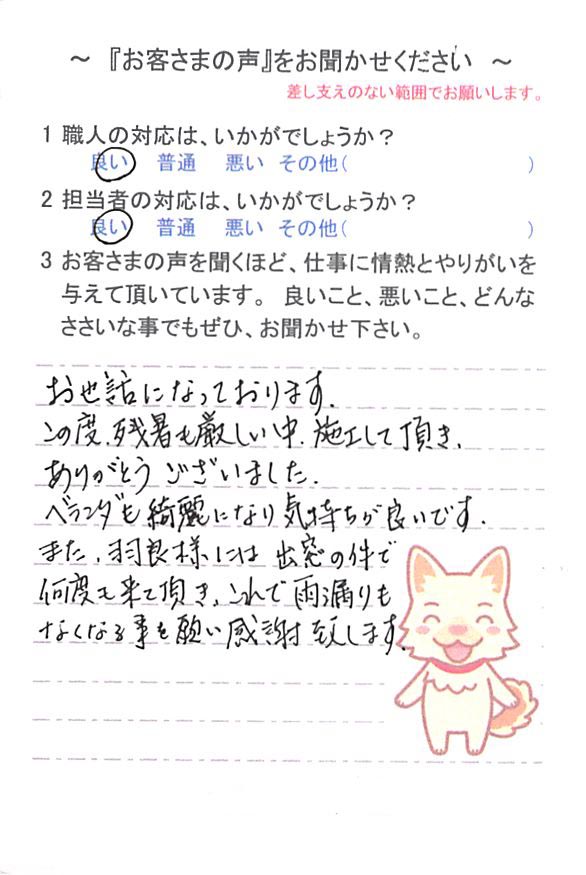 ～ 『お客さまの声』をお聞かせください ～
差し支えのない範囲でお願いします。
1 職人の対応は、いかがでしょうか？
良い 普通 悪い その他( )
2 担当者の対応は、いかがでしょうか？
良い 普通 悪い その他( )
3 お客さまの声を聞くほど、仕事に情熱とやりがいを
与えて頂いています。 良いこと、悪いこと、どんな
ささいな事でもぜひ、お聞かせ下さい。
お世話になっております。
この度、残暑も厳しい中、施工して頂き、
ありがとうございました。
ベランダも綺麗になり気持ちが良いです。
また、羽良様には出窓の件で
何度も来て頂き、これで雨漏りも
なくなる事を願い感謝致します。